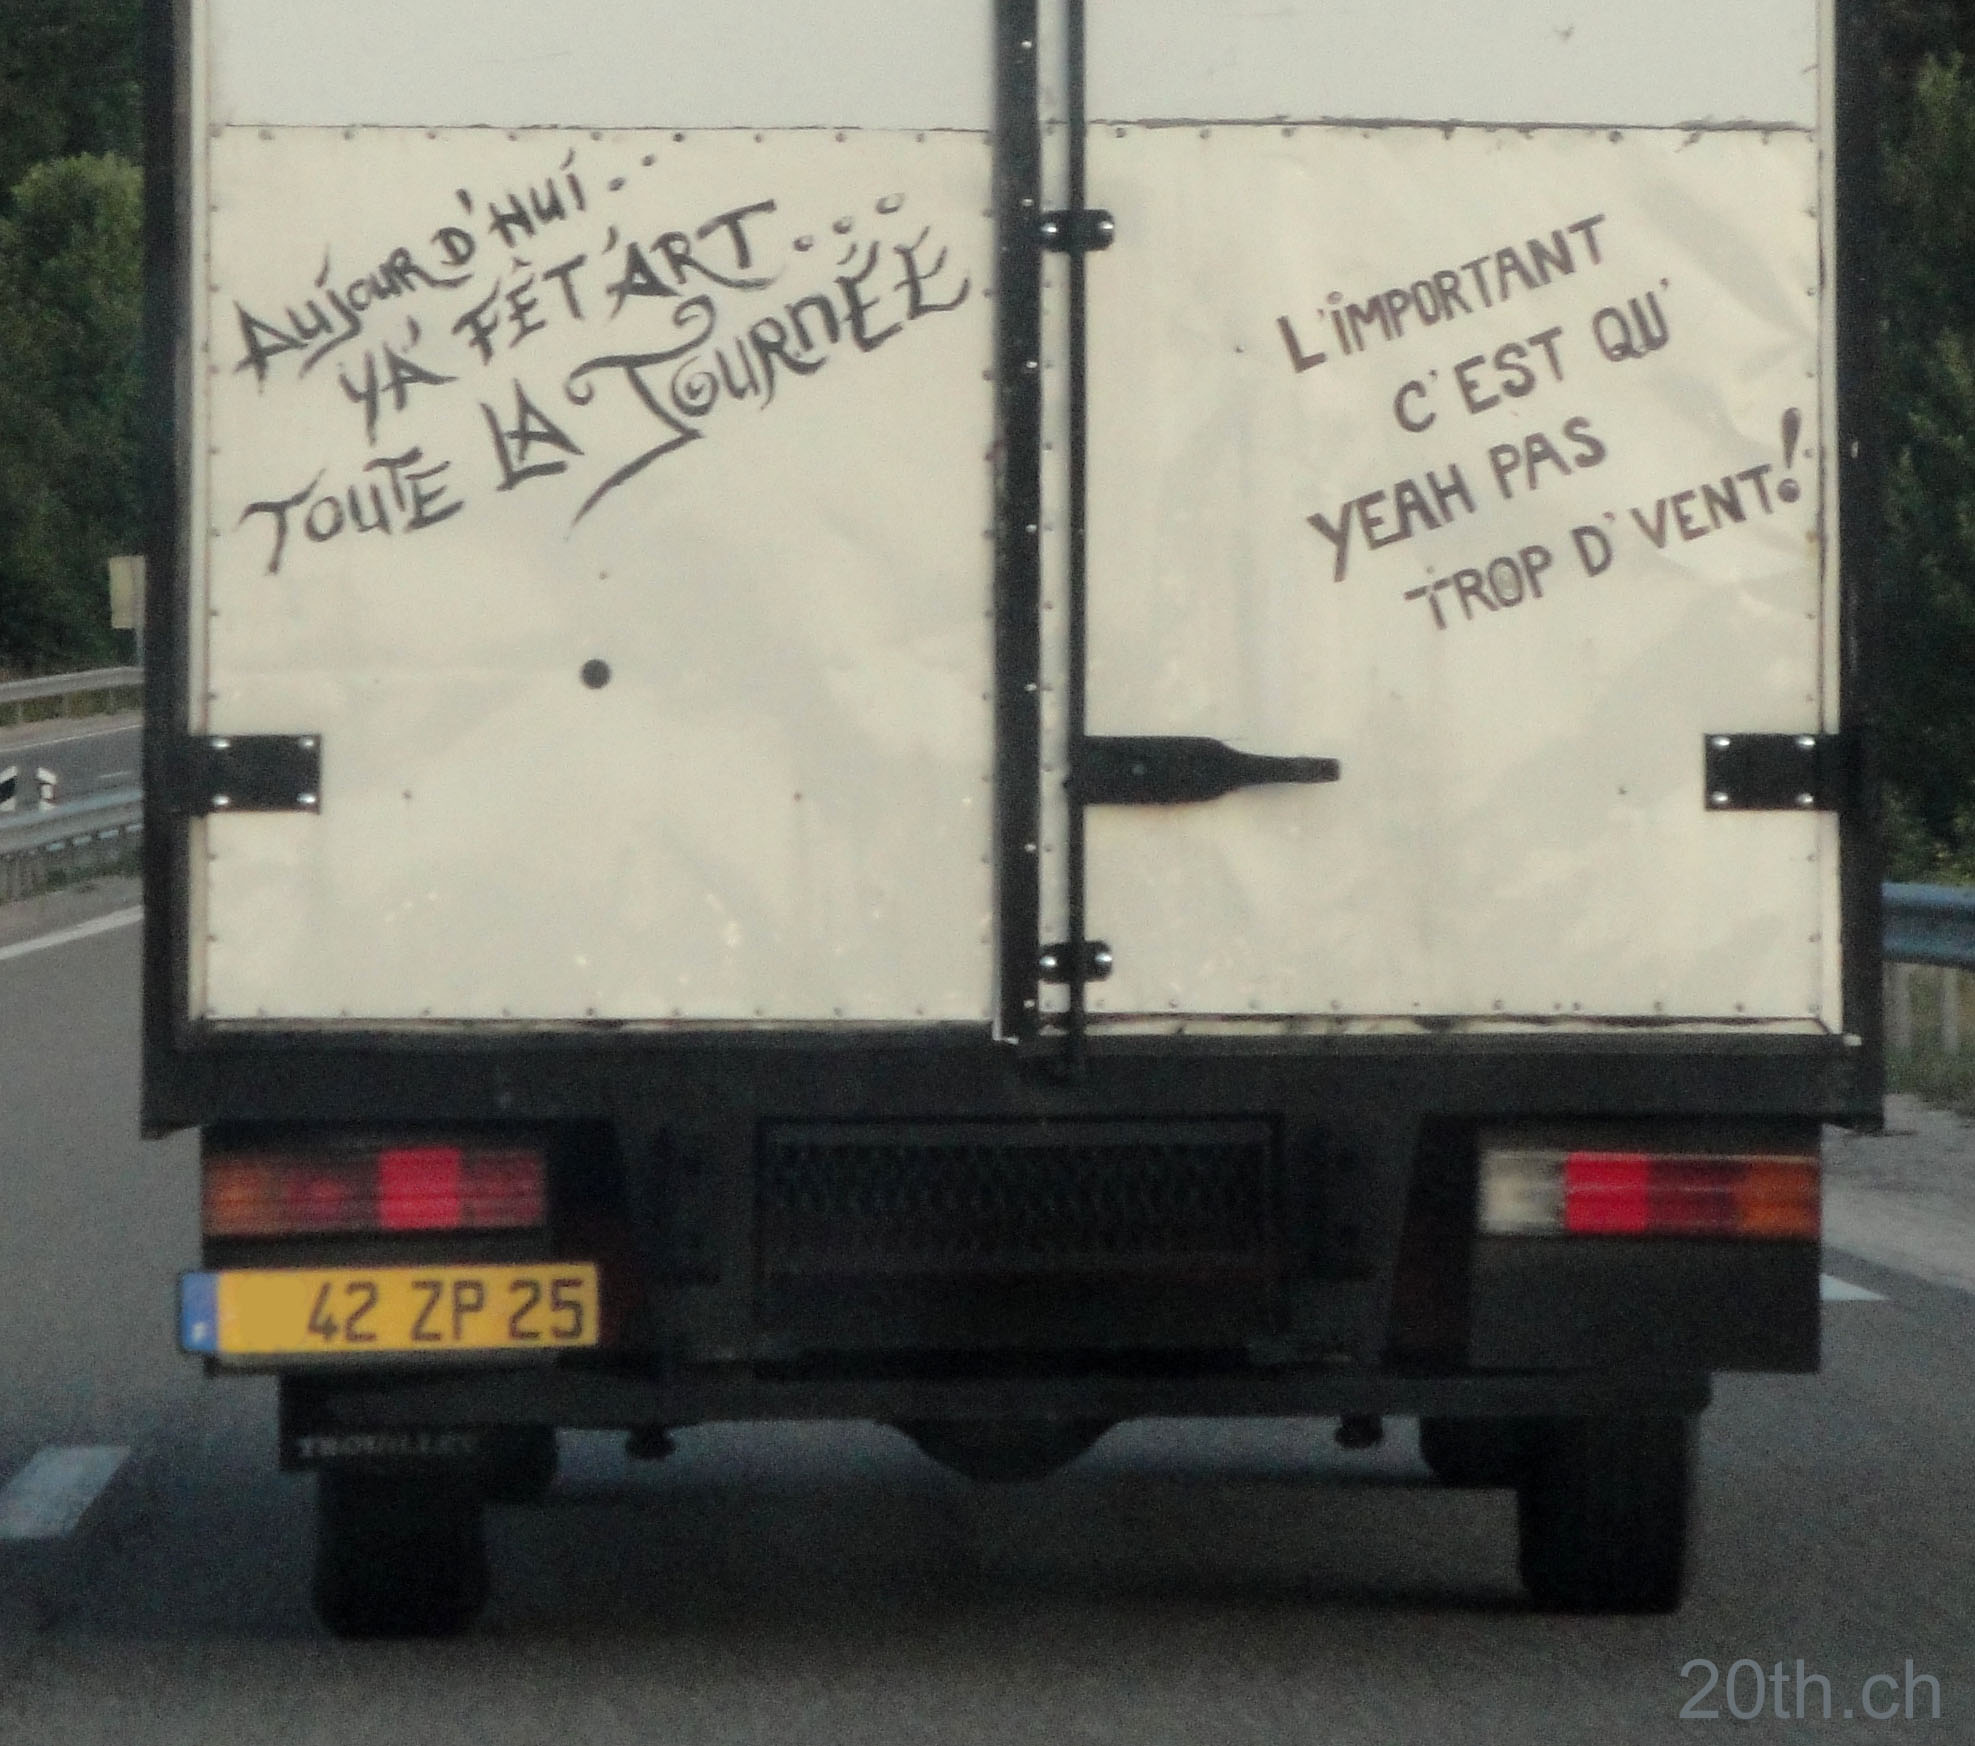 AUJOURD'HUI...
YA' FÊT'ART...
TOUTE LA TOURNÉE
L'IMPORTANT
C'EST QU'
YEAH PAS
TROP D'VENT!
42 ZP 25
TROUILLET
20th.ch